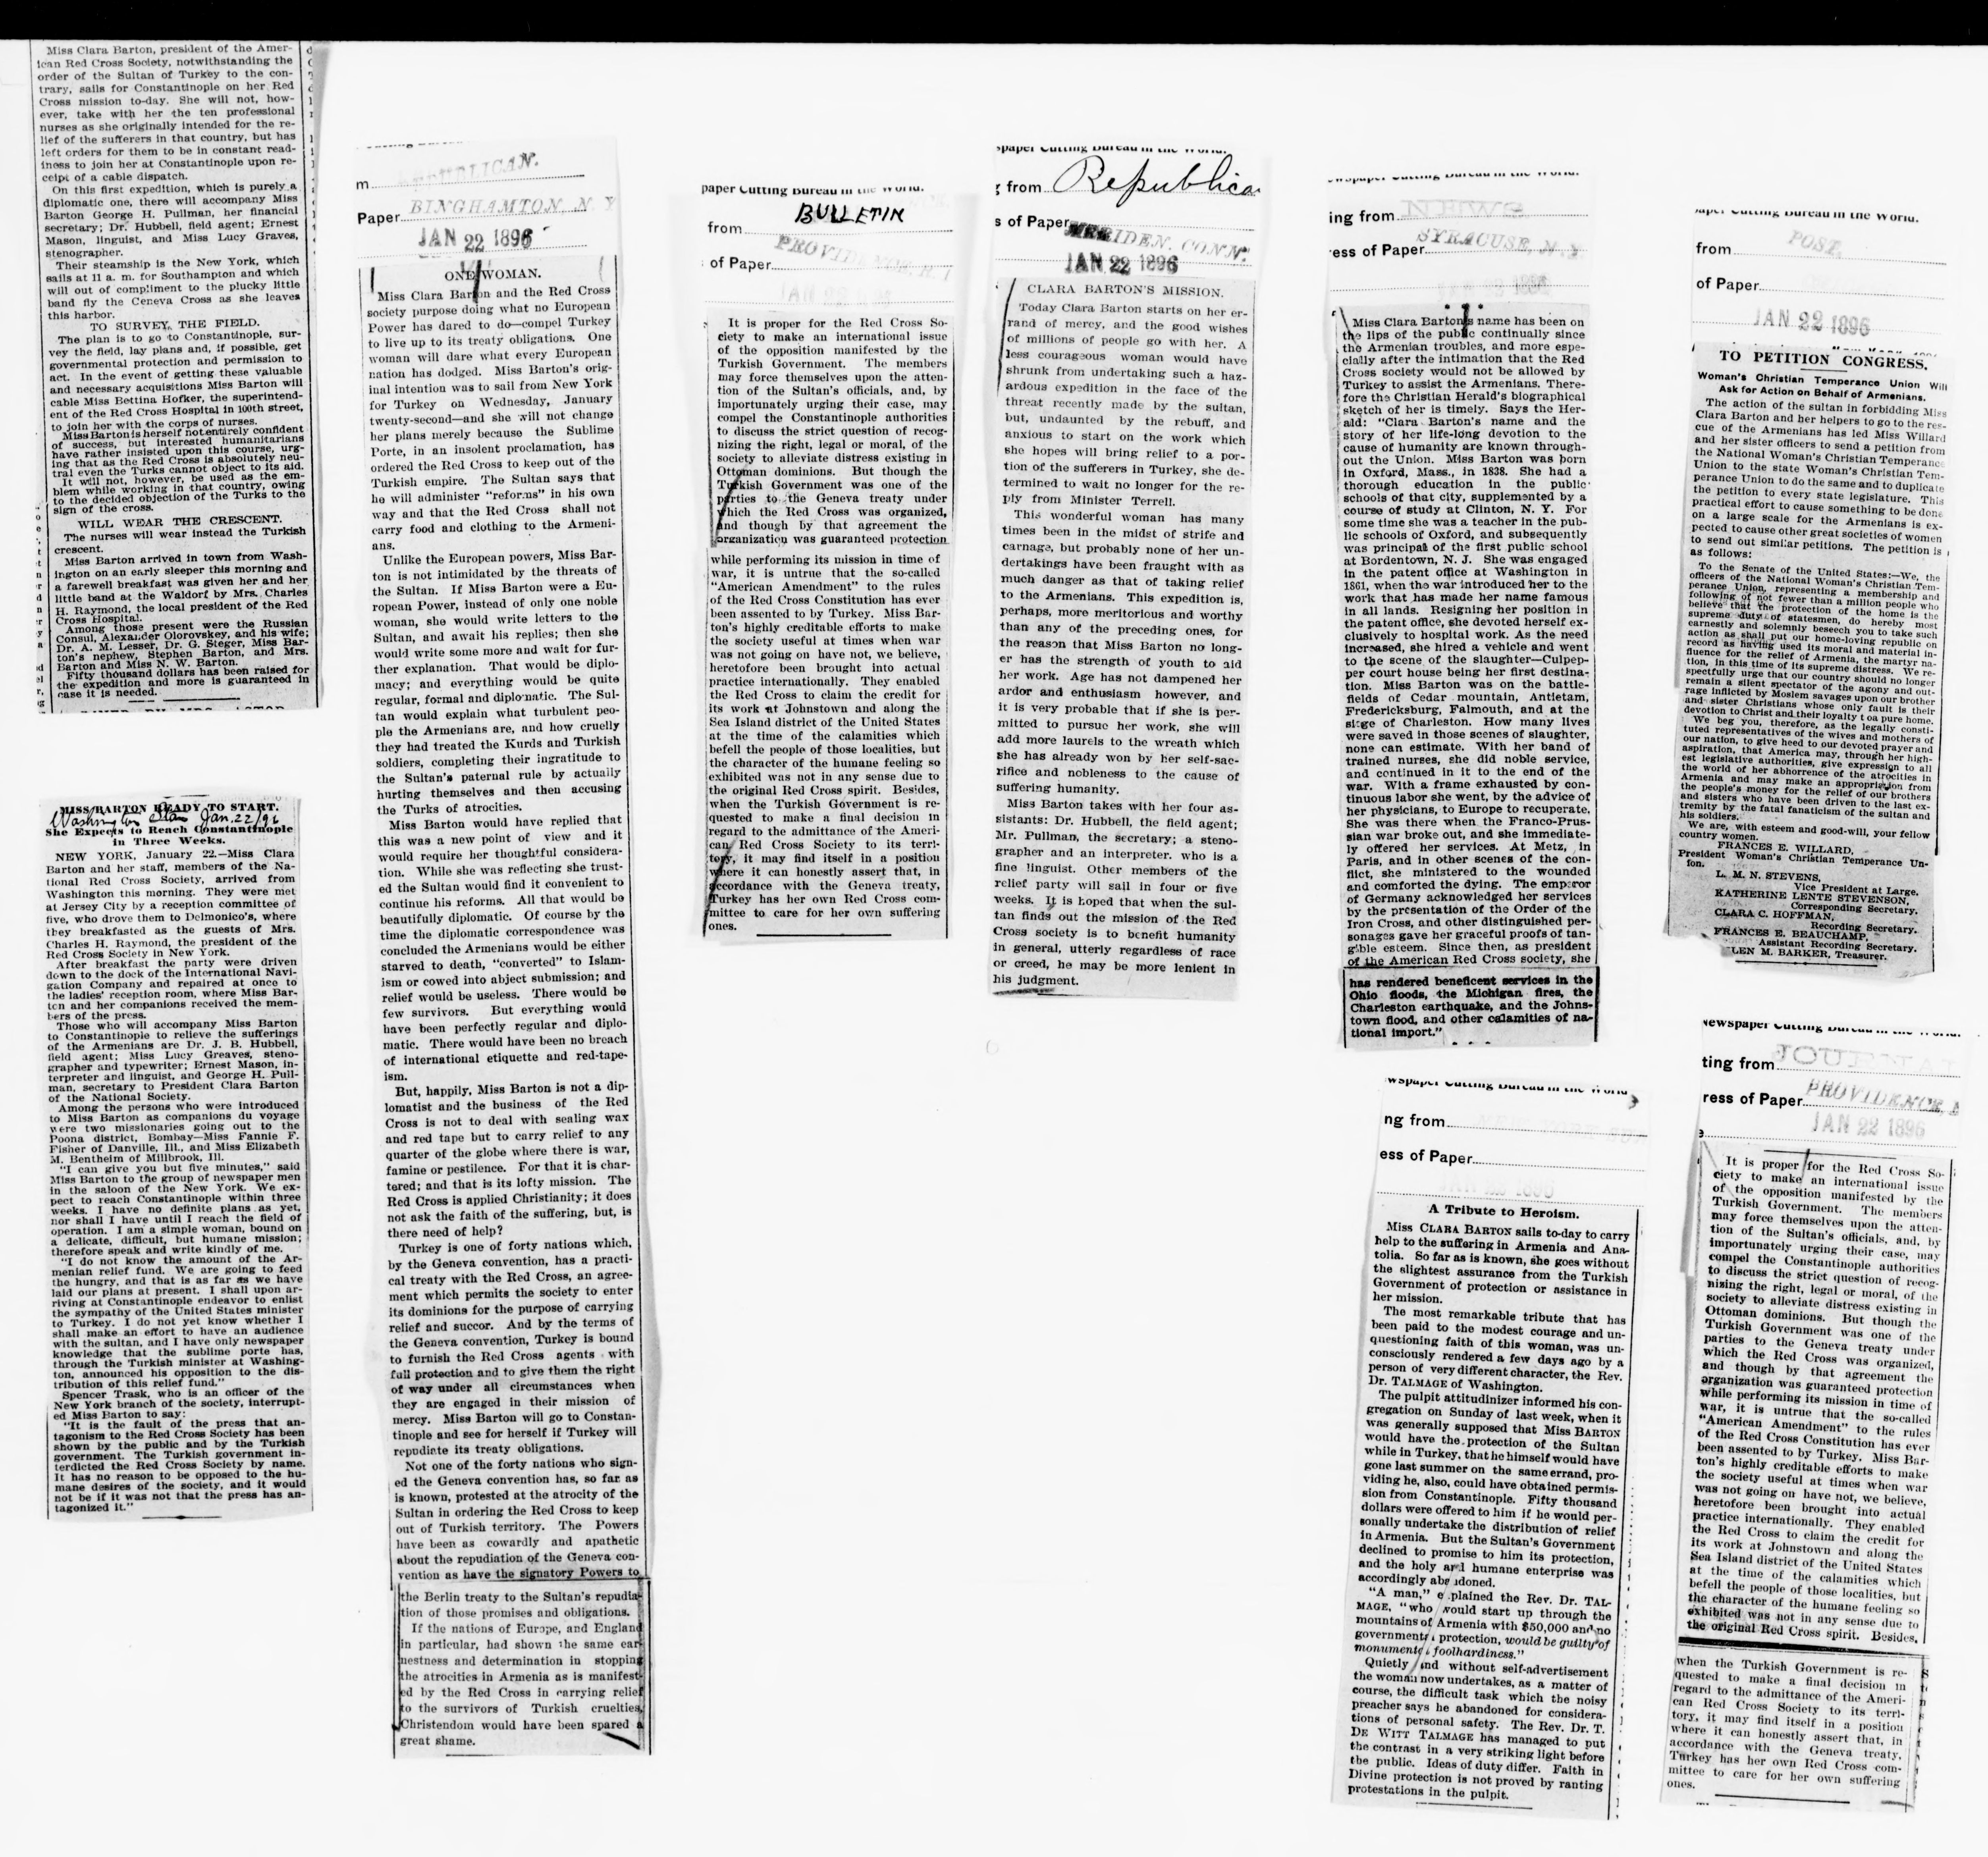 Miss Clara Barton, president of the Amer-
ican Red Cross Society, notwithstanding the
order of the Sultan of Turkey to the con-
trary, sails for Constantinople on her Red
Cross mission to-day. She will not, how-
ever, take with her the ten professional
nurses as she originally intended for the re-
lief of the sufferers in that country, but has
left orders for them to be in constant read-
iness to join her at Constantinople upon re-
ceipt of a cable dispatch.
On this first expedition, which is purely a
diplomatic one, there will accompany Miss
Barton George H. Pullman, her financial
secretary; Dr. Hubbell, field agent; Ernest
Mason, linguist, and Miss Lucy Graves,
stenographer.
Their steamship is the New York, which
sails at 11 a. m. for Southampton and which
will out of compliment to the plucky little
band fly the Geneva Cross as she leaves
this harbor.
TO SURVEY THE FIELD.
The plan is to go to Constantinople, sur-
vey the field, lay plans and, if possible, get
governmental protection and permission to
act. In the event of getting these valuable
and necessary acquisitions Miss Barton will
cable Miss Bettina Hofker, the superintend-
ent of the Red Cross Hospital in 100th street,
to join her with the corps of nurses.
Miss Barton is herself not entirely confident
of success, but interested humanitarians
have rather insisted upon this course, urg-
ing that as the Red Cross is absolutely neu-
tral even the Turks cannot object to its aid.
It will not, however, be used as the em-
blem while working in that country, owing
to the decided objection of the Turks to the
sign of the cross.
WILL WEAR THE CRESCENT.
The nurses will wear instead the Turkish
crescent.
Miss Barton arrived in town from Wash-
ington on an early sleeper this morning and
a farewell breakfast was given her and her
little band at the Waldorf by Mrs. Charles
H. Raymond, the local president of the Red
Cross Hospital.
Among those present were the Russian
Consul, Alexander Olorovskey, and his wife;
Dr. A. M. Lesser, Dr. G. Steger, Miss Bar-
ton's nephew, Stephen Barton, and Mrs.
Barton and Miss N. W. Barton.
Fifty thousand dollars has been raised for
the expedition and more is guaranteed in
case it is needed.
MISS BARTON READY TO START.
Washington Star Jan. 22/96
She Expects to Reach Constantinople
in Three Weeks.
NEW YORK, January 22.—Miss Clara
Barton and her staff, members of the Na-
tional Red Cross Society, arrived from
Washington this morning. They were met
at Jersey City by a reception committee of
five, who drove them to Delmonico's, where
they breakfasted as the guests of Mrs.
Charles H. Raymond, the president of the
Red Cross Society in New York.
After breakfast the party were driven
down to the dock of the International Navi-
gation Company and repaired at once to
the ladies' reception room, where Miss Bar-
ton and her companions received the mem-
bers of the press.
Those who will accompany Miss Barton
to Constantinople to relieve the sufferings
of the Armenians are Dr. J. B. Hubbell,
field agent; Miss Lucy Greaves, steno-
grapher and typewriter; Ernest Mason, in-
terpreter and linguist, and George H. Pull-
man, secretary to President Clara Barton
of the National Society.
Among the persons who were introduced
to Miss Barton as companions du voyage
were two missionaries going out to the
Poona district, Bombay—Miss Fannie F.
Fisher of Danville, Ill., and Miss Elizabeth
M. Bentheim of Millbrook, Ill.
"I can give you but five minutes," said
Miss Barton to the group of newspaper men
in the saloon of the New York. We ex-
pect to reach Constantinople within three
weeks. I have no definite plans as yet,
nor shall I have until I reach the field of
operation. I am a simple woman, bound on
a delicate, difficult, but humane mission;
therefore speak and write kindly of me.
"I do not know the amount of the Ar-
menian relief fund. We are going to feed
the hungry, and that is as far as we have
laid our plans at present. I shall upon ar-
riving at Constantinople endeavor to enlist
the sympathy of the United States minister
to Turkey. I do not yet know whether I
shall make an effort to have an audience
with the sultan, and I have only newspaper
knowledge that the sublime porte has,
through the Turkish minister at Washing-
ton, announced his opposition to the dis-
tribution of this relief fund."
Spencer Trask, who is an officer of the
New York branch of the society, interrupt-
ed Miss Barton to say:
"It is the fault of the press that an-
tagonism to the Red Cross Society has been
shown by the public and by the Turkish
government. The Turkish government in-
terdicted the Red Cross Society by name.
It has no reason to be opposed to the hu-
mane desires of the society, and it would
not be if it was not that the press has an-
tagonized it."
m REPUBLICAN.
Paper BINGHAMTON N. Y
JAN 22 1896
ONE WOMAN.
Miss Clara Barton and the Red Cross
society purpose doing what no European
Power has dared to do—compel Turkey
to live up to its treaty obligations. One
woman will dare what every European
nation has dodged. Miss Barton's orig-
inal intention was to sail from New York
for Turkey on Wednesday, January
twenty-second—and she will not change
her plans merely because the Sublime
Porte, in an insolent proclamation, has
ordered the Red Cross to keep out of the
Turkish empire. The Sultan says that
he will administer "reforms" in his own
way and that the Red Cross shall not
carry food and clothing to the Armeni-
ans.
Unlike the European powers, Miss Bar-
ton is not intimidated by the threats of
the Sultan. If Miss Barton were a Eu-
ropean Power, instead of only one noble
woman, she would write letters to the
Sultan, and await his replies; then she
would write some more and wait for fur-
ther explanation. That would be diplo-
macy; and everything would be quite
regular, formal and diplomatic. The Sul-
tan would explain what turbulent peo-
ple the Armenians are, and how cruelly
they had treated the Kurds and Turkish
soldiers, completing their ingratitude to
the Sultan's paternal rule by actually
hurting themselves and then accusing
the Turks of atrocities.
Miss Barton would have replied that
this was a new point of view and it
would require her thoughtful considera-
tion. While she was reflecting she trust-
ed the Sultan would find it convenient to
continue his reforms. All that would be
beautifully diplomatic. Of course by the
time the diplomatic correspondence was
concluded the Armenians would be either
starved to death, "converted" to Islam-
ism or cowed into abject submission; and
relief would be useless. There would be
few survivors. But everything would
have been perfectly regular and diplo-
matic. There would have been no breach
of international etiquette and red-tape-
ism.
But, happily, Miss Barton is not a dip-
lomatist and the business of the Red
Cross is not to deal with sealing wax
and red tape but to carry relief to any
quarter of the globe where there is war,
famine or pestilence. For that it is char-
tered; and that is its lofty mission. The
Red Cross is applied Christianity; it does
not ask the faith of the suffering, but, is
there need of help?
Turkey is one of forty nations which,
by the Geneva convention, has a practi-
cal treaty with the Red Cross, an agree-
ment which permits the society to enter
its dominions for the purpose of carrying
relief and succor. And by the terms of
the Geneva convention, Turkey is bound
to furnish the Red Cross agents with
full protection and to give them the right
of way under all circumstances when
they are engaged in their mission of
mercy. Miss Barton will go to Constan-
tinople and see for herself if Turkey will
repudiate its treaty obligations.
Not one of the forty nations who sign-
ed the Geneva convention has, so far as
is known, protested at the atrocity of the
Sultan in ordering the Red Cross to keep
out of Turkish territory. The Powers
have been as cowardly and apathetic
about the repudiation of the Geneva con-
vention as have the signatory Powers to
the Berlin treaty to the Sultan's repudia-
tion of those promises and obligations.
If the nations of Europe, and England
in particular, had shown the same ear-
nestness and determination in stopping
the atrocities in Armenia as is manifest-
ed by the Red Cross in carrying relief
to the survivors of Turkish cruelties,
Christendom would have been spared a
great shame.
paper Cutting Bureau in the World.
BULLETIN
from
of Paper PROVIDENCE, R. I
JAN 22 1896
It is proper for the Red Cross So-
ciety to make an international issue
of the opposition manifested by the
Turkish Government. The members
may force themselves upon the atten-
tion of the Sultan's officials, and, by
importunately urging their case, may
compel the Constantinople authorities
to discuss the strict question of recog-
nizing the right, legal or moral, of the
society to alleviate distress existing in
Ottoman dominions. But though the
Turkish Government was one of the
parties to the Geneva treaty under
which the Red Cross was organized,
and though by that agreement the
organization was guaranteed protection
while performing its mission in time of
war, it is untrue that the so-called
"American Amendment" to the rules
of the Red Cross Constitution has ever
been assented to by Turkey. Miss Bar-
ton's highly creditable efforts to make
the society useful at times when war
was not going on have not, we believe,
heretofore been brought into actual
practice internationally. They enabled
the Red Cross to claim the credit for
its work at Johnstown and along the
Sea Island district of the United States
at the time of the calamities which
befell the people of those localities, but
the character of the humane feeling so
exhibited was not in any sense due to
the original Red Cross spirit. Besides,
when the Turkish Government is re-
quested to make a final decision in
regard to the admittance of the Ameri-
can Red Cross Society to its terri-
tory, it may find itself in a position
where it can honestly assert that, in
accordance with the Geneva treaty,
Turkey has her own Red Cross com-
mittee to care for her own suffering
ones.
spaper Cutting Bureau in the World.
g from Republica
s of Paper MERIDEN. CONN.
JAN 22 1896
CLARA BARTON'S MISSION.
Today Clara Barton starts on her er-
rand of mercy, and the good wishes
of millions of people go with her. A
less courageous woman would have
shrunk from undertaking such a haz-
ardous expedition in the face of the
threat recently made by the sultan,
but, undaunted by the rebuff, and
anxious to start on the work which
she hopes will bring relief to a por-
tion of the sufferers in Turkey, she de-
termined to wait no longer for the re-
ply from Minister Terrell.
This wonderful woman has many
times been in the midst of strife and
carnage, but probably none of her un-
dertakings have been fraught with as
much danger as that of taking relief
to the Armenians. This expedition is,
perhaps, more meritorious and worthy
than any of the preceding ones, for
the reason that Miss Barton no long-
er has the strength of youth to aid
her work. Age has not dampened her
ardor and enthusiasm however, and
it is very probable that if she is per-
mitted to pursue her work, she will
add more laurels to the wreath which
she has already won by her self-sac-
rifice and nobleness to the cause of
suffering humanity.
Miss Barton takes with her four as-
sistants: Dr. Hubbell, the field agent;
Mr. Pullman, the secretary; a steno-
grapher and an interpreter. who is a
fine linguist. Other members of the
relief party will sail in four or five
weeks. It is hoped that when the sul-
tan finds out the mission of the Red
Cross society is to benefit humanity
in general, utterly regardless of race
or creed, he may be more lenient in
his judgment.
ewspaper Cutting Bureau in the World.
ing from NEWS
ress of Paper SYRACUSE, N. Y
Miss Clara Barton's name has been on
the lips of the public continually since
the Armenian troubles, and more espe-
cially after the intimation that the Red
Cross society would not be allowed by
Turkey to assist the Armenians. There-
fore the Christian Herald's biographical
sketch of her is timely. Says the Her-
ald: "Clara Barton's name and the
story of her life-long devotion to the
cause of humanity are known through-
out the Union. Miss Barton was born
in Oxford, Mass., in 1838. She had a
thorough education in the public
schools of that city, supplemented by a
course of study at Clinton, N. Y. For
some time she was a teacher in the pub-
lic schools of Oxford, and subsequently
was principal of the first public school
at Bordentown, N. J. She was engaged
in the patent office at Washington in
1861, when the war introduced her to the
work that has made her name famous
in all lands. Resigning her position in
the patent office, she devoted herself ex-
clusively to hospital work. As the need
increased, she hired a vehicle and went
to the scene of the slaughter—Culpep-
per court house being her first destina-
tion. Miss Barton was on the battle-
fields of Cedar mountain, Antietam,
Fredericksburg, Falmouth, and at the
siege of Charleston. How many lives
were saved in those scenes of slaughter,
none can estimate. With her band of
trained nurses, she did noble service,
and continued in it to the end of the
war. With a frame exhausted by con-
tinuous labor she went, by the advice of
her physicians, to Europe to recuperate.
She was there when the Franco-Prus-
sian war broke out, and she immediate-
ly offered her services. At Metz, in
Paris, and in other scenes of the con-
flict, she ministered to the wounded
and comforted the dying. The emperor
of Germany acknowledged her services
by the presentation of the Order of the
Iron Cross, and other distinguished per-
sonages gave her graceful proofs of tan-
gible esteem. Since then, as president
of the American Red Cross society, she
has rendered beneficent services in the
Ohio floods, the Michigan fires, the
Charleston earthquake, and the Johns-
town flood, and other calamities of na-
tional import."
wspaper Cutting Bureau in the World
ng from
ess of Paper
A Tribute to Heroism.
Miss CLARA BARTON sails to-day to carry
help to the suffering in Armenia and Ana-
tolia. So far as is known, she goes without
the slightest assurance from the Turkish
Government of protection or assistance in
her mission.
The most remarkable tribute that has
been paid to the modest courage and un-
questioning faith of this woman, was un-
consciously rendered a few days ago by a
person of very different character, the Rev.
Dr. TALMAGE of Washington.
The pulpit attitudinizer informed his con-
gregation on Sunday of last week, when it
was generally supposed that Miss BARTON
would have the protection of the Sultan
while in Turkey, that he himself would have
gone last summer on the same errand, pro-
viding he, also, could have obtained permis-
sion from Constantinople. Fifty thousand
dollars were offered to him if he would per-
sonally undertake the distribution of relief
in Armenia. But the Sultan's Government
declined to promise to him its protection,
and the holy and humane enterprise was
accordingly abandoned.
"A man," explained the Rev. Dr. TAL-
MAGE, "who would start up through the
mountains of Armenia with $50,000 and no
governmental protection, would be guilty of
monumental foolhardiness."
Quietly and without self-advertisement
the woman now undertakes, as a matter of
course, the difficult task which the noisy
preacher says he abandoned for considera-
tions of personal safety. The Rev. Dr. T.
DE WITT TALMAGE has managed to put
the contrast in a very striking light before
the public. Ideas of duty differ. Faith in
Divine protection is not proved by ranting
protestations in the pulpit.
aper Cutting Bureau in the World.
from POST,
of Paper
JAN 22 1896
TO PETITION CONGRESS.
Woman's Christian Temperance Union Will
Ask for Action on Behalf of Armenians.
The action of the sultan in forbidding Miss
Clara Barton and her helpers to go to the res-
cue of the Armenians has led Miss Willard
and her sister officers to send a petition from
the National Woman's Christian Temperance
Union to the state Woman's Christian Tem-
perance Union to do the same and to duplicate
the petition to every state legislature. This
practical effort to cause something to be done
on a large scale for the Armenians is ex-
pected to cause other great societies of women
to send out similar petitions. The petition is
as follows:
To the Senate of the United States:—We, the
officers of the National Woman's Christian Tem-
perance Union, representing a membership and
following of not fewer than a million people who
believe that the protection of the home is the
supreme duty of statesmen, do hereby most
earnestly and solemnly beseech you to take such
action as shall put our home-loving republic on
record as having used its moral and material in-
fluence for the relief of Armenia, the martyr na-
tion, in this time of its supreme distress. We re-
spectfully urge that our country should no longer
remain a silent spectator of the agony and out-
rage inflicted by Moslem savages upon our brother
and sister Christians whose only fault is their
devotion to Christ and their loyalty t oa pure home.
We beg you, therefore, as the legally consti-
tuted representatives of the wives and mothers of
our nation, to give heed to our devoted prayer and
aspiration, that America may, through her high-
est legislative authorities, give expression to all
the world of her abhorrence of the atrocities in
Armenia and may make an appropriation from
the people's money for the relief of our brothers
and sisters who have been driven to the last ex-
tremity by the fanaticism of the sultan and
his soldiers.
We are, with esteem and good-will, your fellow
country women.
FRANCES E. WILLARD,
President Woman's Christian Temperance Un-
ion.
L. M. N. STEVENS,
Vice President at Large.
KATHERINE LENTE STEVENSON,
Corresponding Secretary.
CLARA C. HOFFMAN,
Recording Secretary.
FRANCES E. BEAUCHAMP,
Assistant Recording Secretary.
LEN M. BARKER, Treasurer.
Newspaper Cutting Bureau in the World.
ting from
ress of Paper PROVIDENCE,
JAN 22 1896
It is proper for the Red Cross So-
ciety to make an international issue
of the opposition manifested by the
Turkish Government. The members
may force themselves upon the atten-
tion of the Sultan's officials, and, by
importunately urging their case, may
compel the Constantinople authorities
to discuss the strict question of recog-
nizing the right, legal or moral, of the
society to alleviate distress existing in
Ottoman dominions. But though the
Turkish Government was one of the
parties to the Geneva treaty under
which the Red Cross was organized,
and though by that agreement the
organization was guaranteed protection
while performing its mission in time of
war, it is untrue that the so-called
"American Amendment" to the rules
of the Red Cross Constitution has ever
been assented to by Turkey. Miss Bar-
ton's highly creditable efforts to make
the society useful at times when war
was not going on have not, we believe,
heretofore been brought into actual
practice internationally. They enabled
the Red Cross to claim the credit for
its work at Johnstown and along the
Sea Island district of the United States
at the time of the calamities which
befell the people of those localities, but
the character of the humane feeling so
exhibited was not in any sense due to
the original Red Cross spirit. Besides,
when the Turkish Government is re-
quested to make a final decision in
regard to the admittance of the Ameri-
can Red Cross Society to its terri-
tory, it may find itself in a position
where it can honestly assert that, in
accordance with the Geneva treaty,
Turkey has her own Red Cross com-
mittee to care for her own suffering
ones.